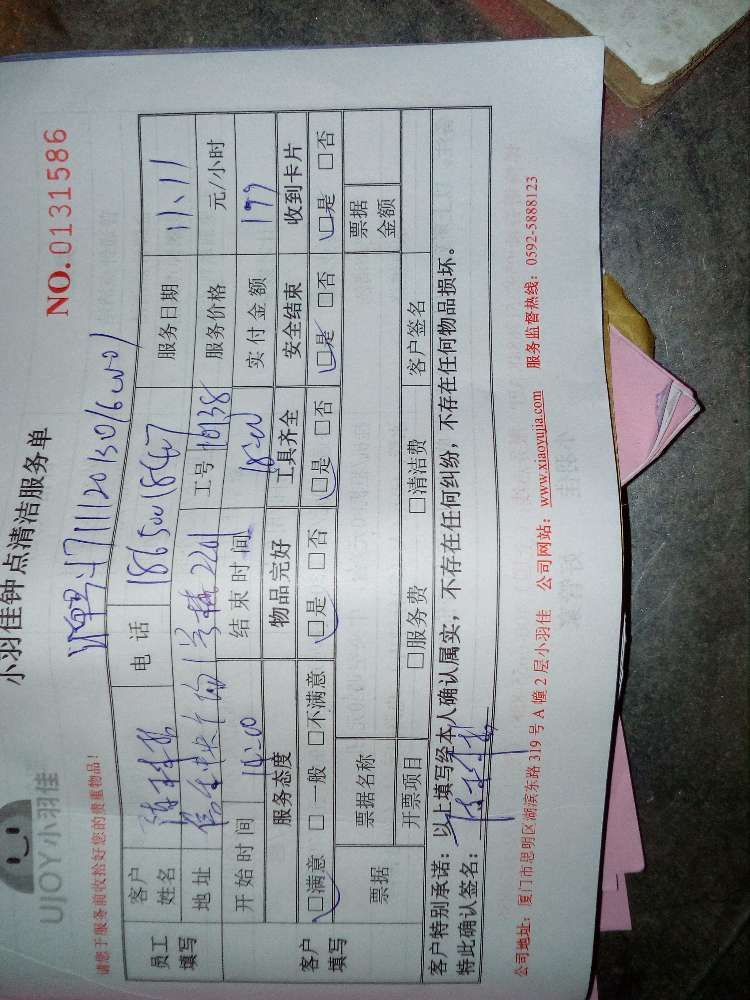 UJOY小羽佳
小羽佳钟点清洁服务单
NO.0131586
请您于服务前收拾好您的贵重物品!
员工填写
客户姓名
电 话
服务日期 11.11
地 址
工号 10138
服务价格 元/小时
开始时间 14:00
结束时间 18:00
实付金额 199
客户填写
服务态度 物品完好 工具齐全 安全结束 收到卡片
□满意 □一般 □不满意 □是 □否 □是 □否 □是 □否 □是 □否
票据
票据名称
票据金额
开票项目 □服务费 □清洁费 客户签名
客户特别承诺:以上填写经本人确认属实,不存在任何纠纷,不存在任何物品损坏。
特此确认签名:
公司地址:厦门市思明区湖滨东路319号A幢2层小羽佳 公司网站:www.xiaoyujia.com 服务监督热线:0592-5888123